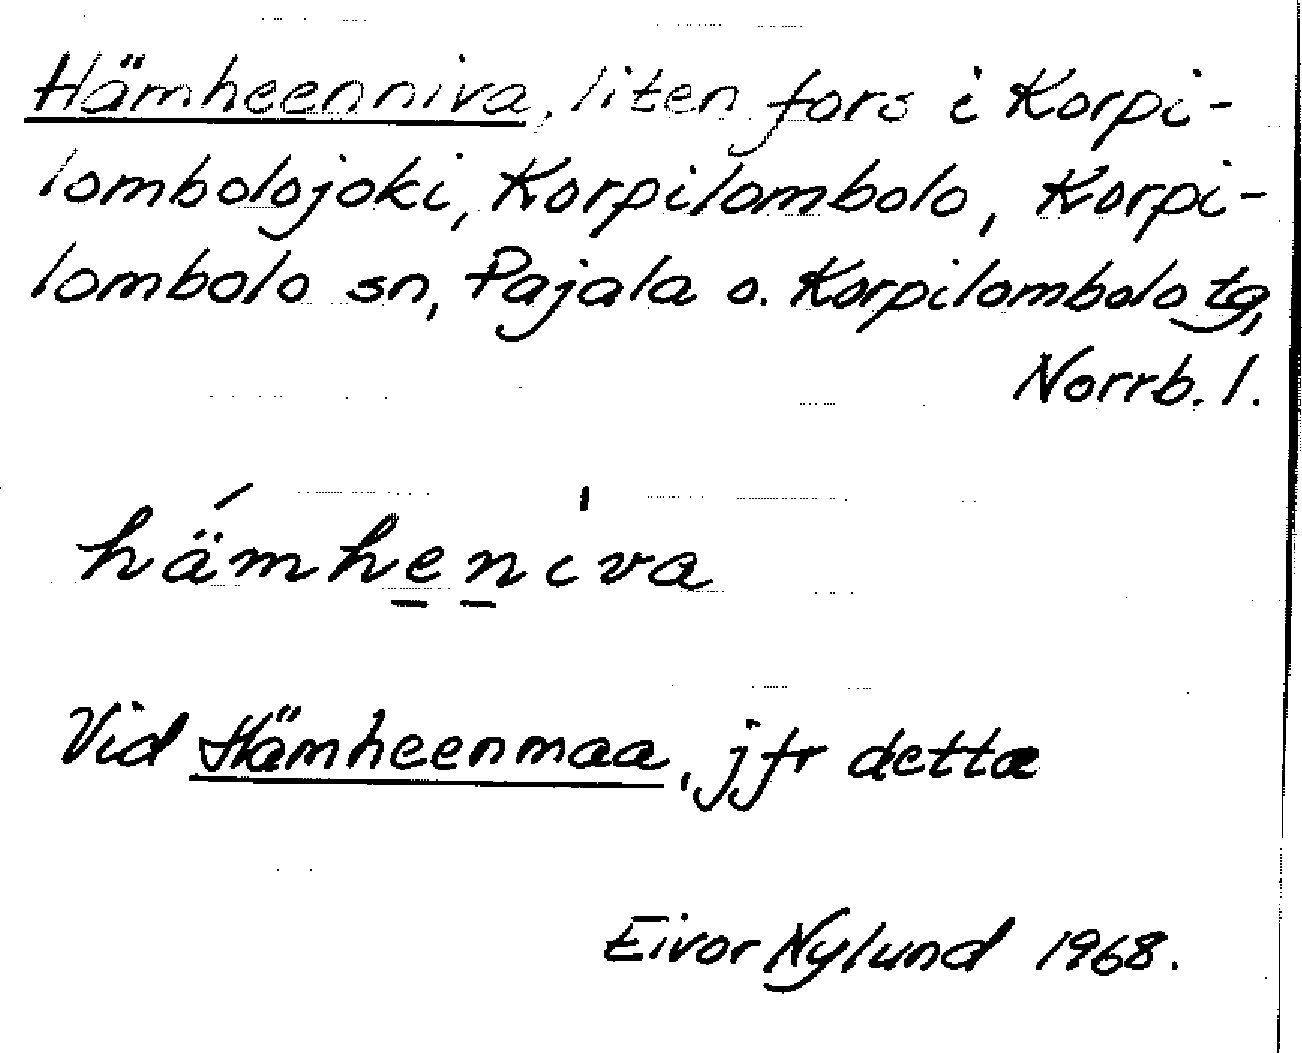 Hämheenniva, liten fors i Korpi-
lombolojoki, Korpilombolo, Korpi-
lombolo sn, Pajala o. Korpilombolo tg,
Norrb. l.
hä́mhe̲n̲i̍va
Vid Hämheenmaa, jfr detta
Eivor Nylund 1968.